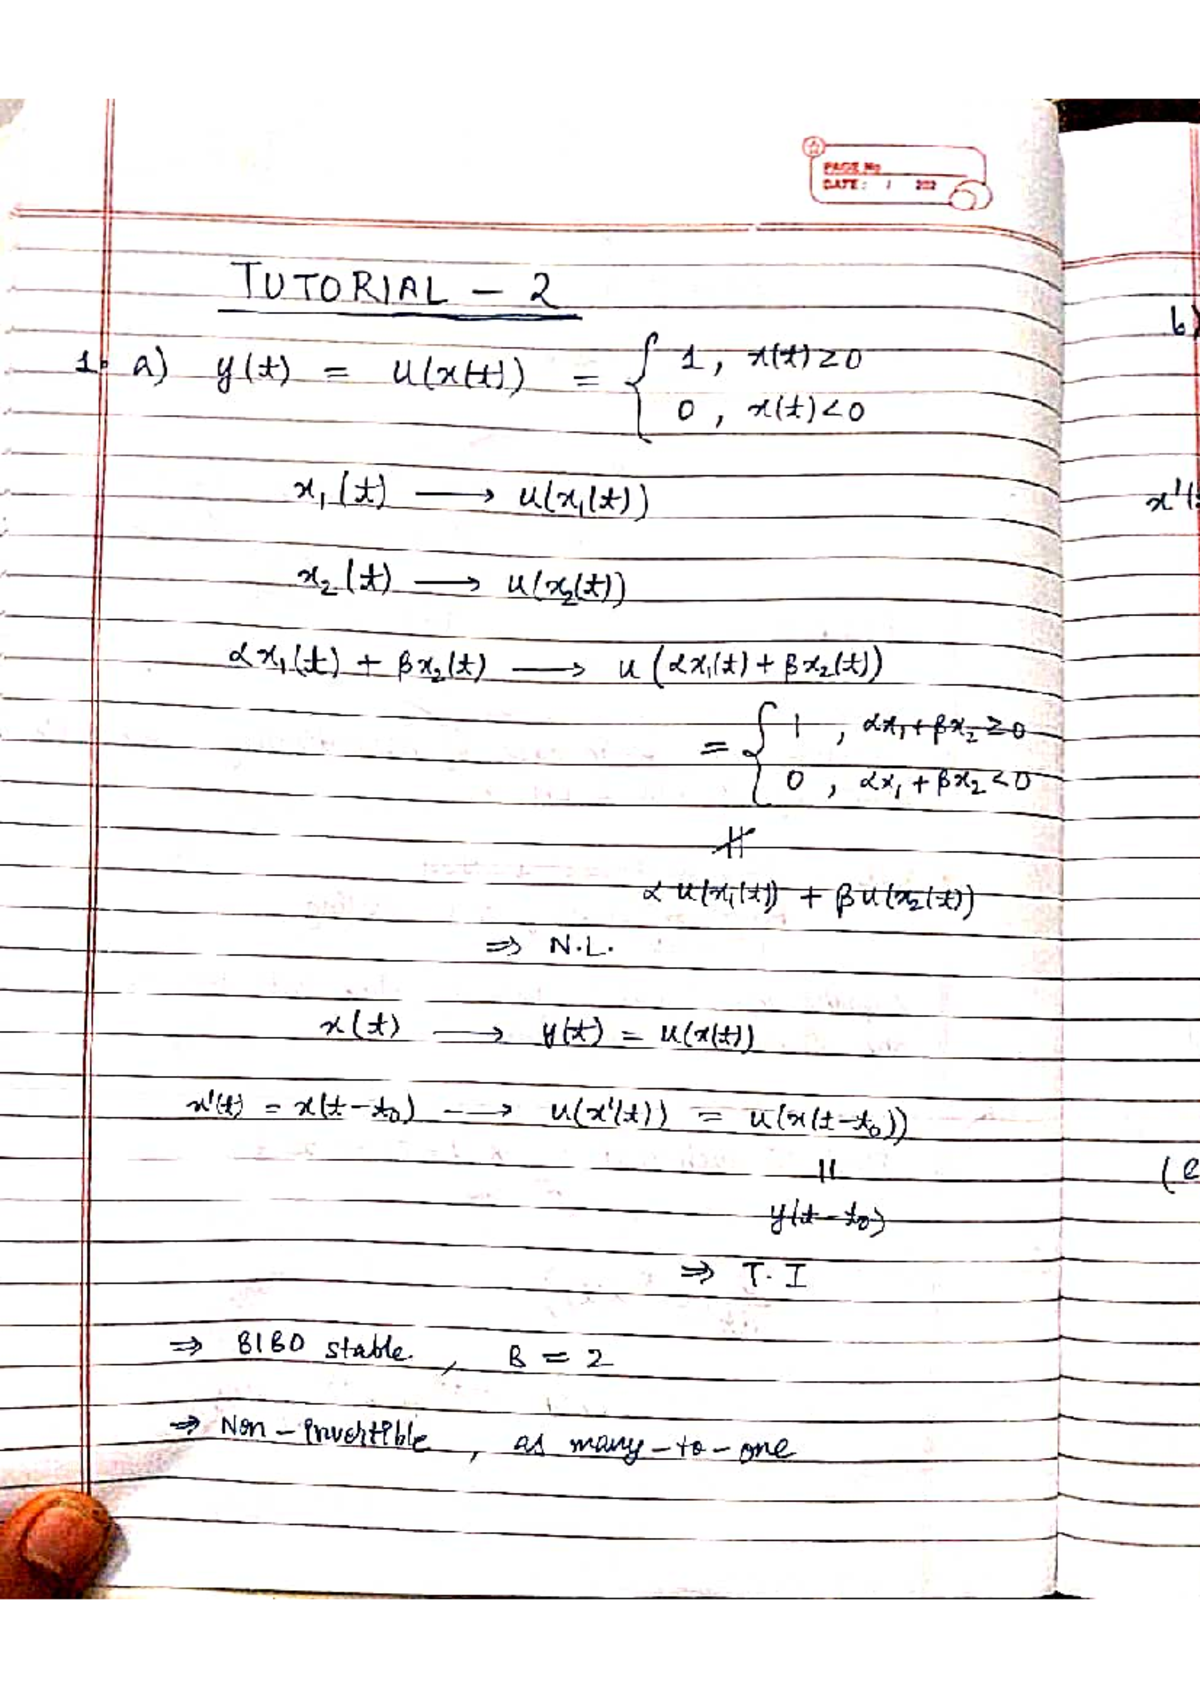 PAGE No
DATE: / 202
TUTORIAL - 2
1. a) y(t) = u(x(t)) = { 1, x(t) ≥ 0
0, x(t) < 0
x₁(t) ⟶ u(x₁(t))
x₂(t) ⟶ u(x₂(t))
αx₁(t) + βx₂(t) ⟶ u(αx₁(t) + βx₂(t))
= { 1, αx₁ + βx₂ ≥ 0
0, αx₁ + βx₂ < 0
∦
α u(x₁(t)) + β u(x₂(t))
⇒ N.L.
x(t) ⟶ y(t) = u(x(t))
x'(t) = x(t-t₀) ⟶ u(x'(t)) = u(x(t-t₀))
||
y(t-t₀)
⇒ T.I
⇒ BIBO stable, B = 2
⇒ Non-invertible, as many-to-one
b)
x'(
(e